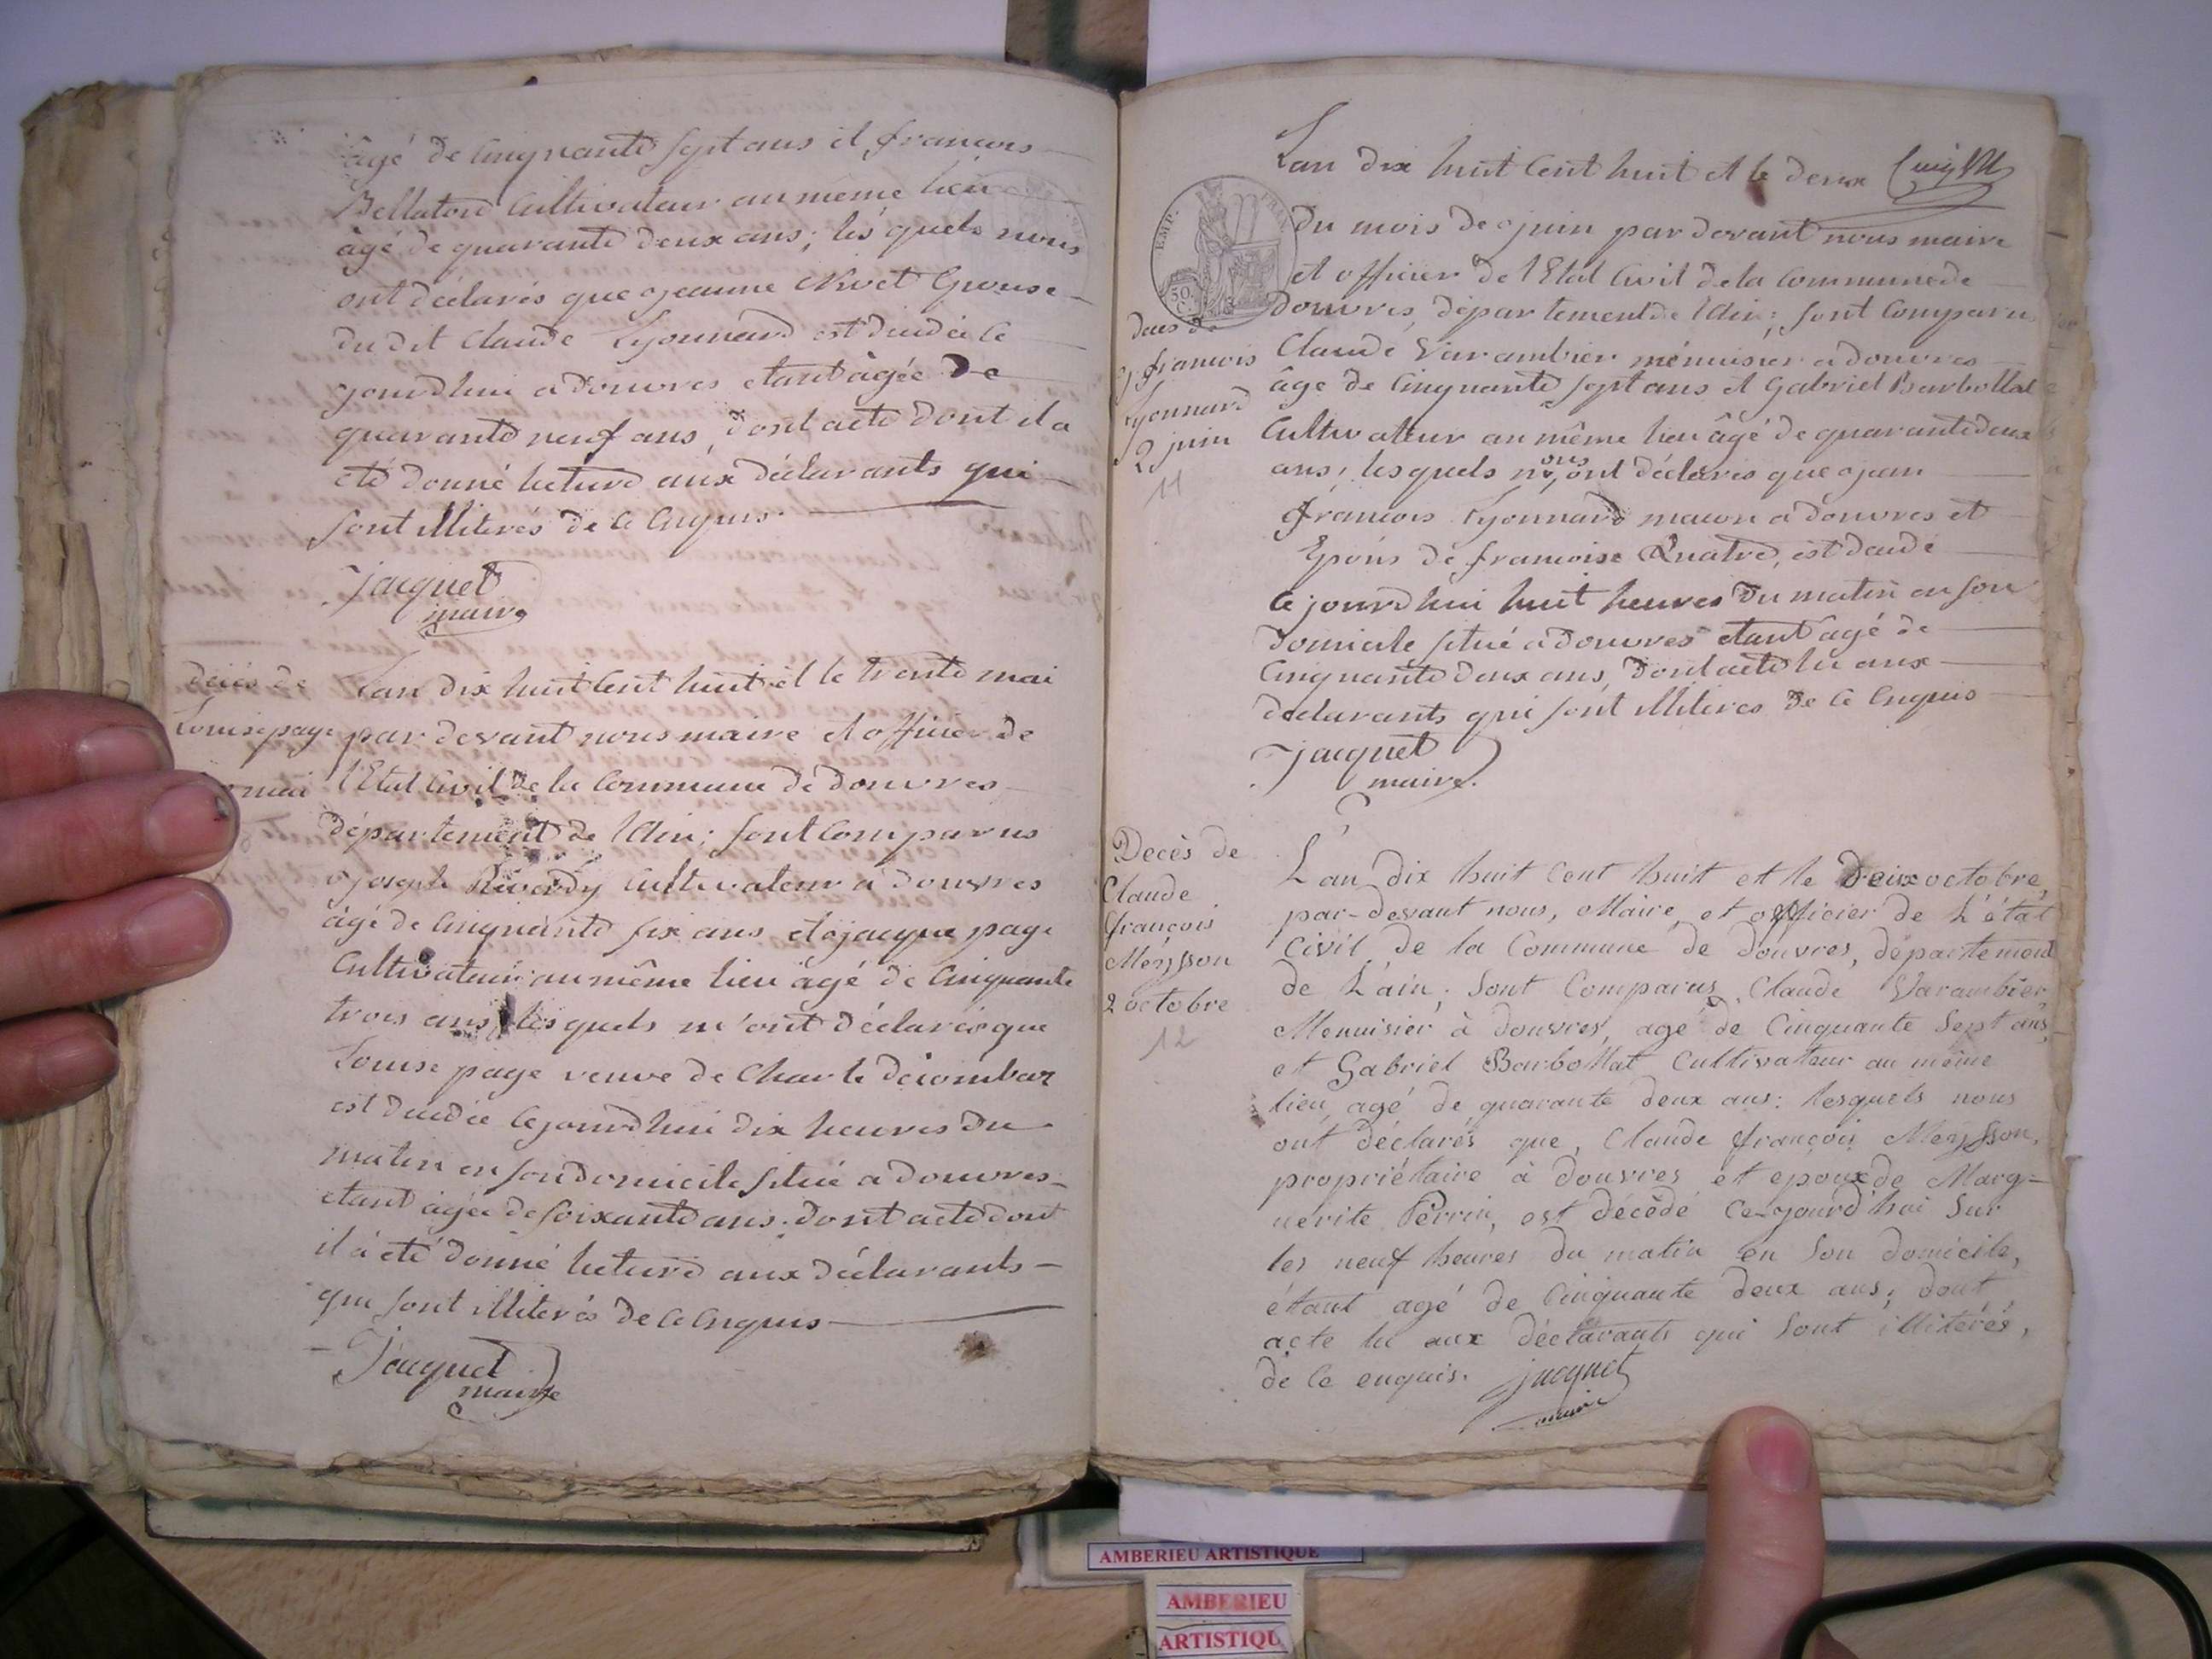 âgé de cinquante sept ans et françois
Bellaton Cultivateur au meme lieu
âgé de quarante deux ans; lesquels nous
ont déclarés que jeanne Nivet Epouse
du dit Claude Lyonnard est dècedée ce
jourdhui a douvres etant âgée de
quarante neuf ans, dont acte dont il a
eté donné lecture aux déclarants qui
sont illiterés de ce enquis.
jacquet
maire
décès de
Louise page
mai
Lan dix huit Cent huit et le trente mai
par devant nous maire et officier de
l'Etat Civil de la Commune de douvres
département de l'Ain; sont Comparus
joseph Réverdy Cultivateur a douvres
âgé de cinquante six ans et jacque page
Cultivateur au même lieu âgé de Cinquante
trois ans lesquels m'ont déclarés que
Louise page veuve de Charle decombaz
est décedée cejourdhui dix heures du
matin en son domicile situé a douvres
etant âgée de soixante ans. dont acte dont
il a été donné lecture aux déclarants
qui sont illiterés de ce enquis
jacquet
maire
EMP. FRAN.
50 C.
Lan dix huit Cent huit et le deux
du mois de juin par devant nous maire
et officier de l'Etat Civil de la Commune de
douvres, département de l'Ain; sont Comparu
Claude Varambier ménuisier a douvres
âge de Cinquante sept ans et Gabriel Barbollat
Cultivateur au même lieu âgé de quarante deux
ans, lesquels nous ont déclarés que jean
françois Lyonnard macon a douvres et
Epoùs de francoise Quatre, est decedé
ce jourdhui huit heures du matin en son
domicile situé a douvres etant âgé de
Cinquante deux ans, dont acte lu aux
declarants qui sont illiteres de ce enquis
jacquet
maire.
deces de
j françois
Lyonnard
2 juin
11
Decès de
Claude
françois
Meÿsson
2 octobre
12
L'an dix huit Cent huit et le Deux octobre,
par-devant nous, Maire, et officier de L'état
Civil de la Commune de douvres, département
de L'ain; sont Comparus, Claude Varambier
Menuisier à douvres, agé de Cinquante Sept ans,
et Gabriel Barbollat Cultivateur au même
lieu, agé de quarante deux ans: lesquels nous
ont déclarés que, Claude françois Meÿsson,
propriétaire à douvres et epoux de Marg=
uerite Perrin, est décédé Ce-jourd'hui Sur
les neuf heures du matin en Son domicile,
étant agé de Cinquante deux ans; dont
acte lu aux déclarants qui Sont illitérés,
de Ce enquis. jacquet
maire
AMBERIEU ARTISTIQUE
AMBERIEU
ARTISTIQU